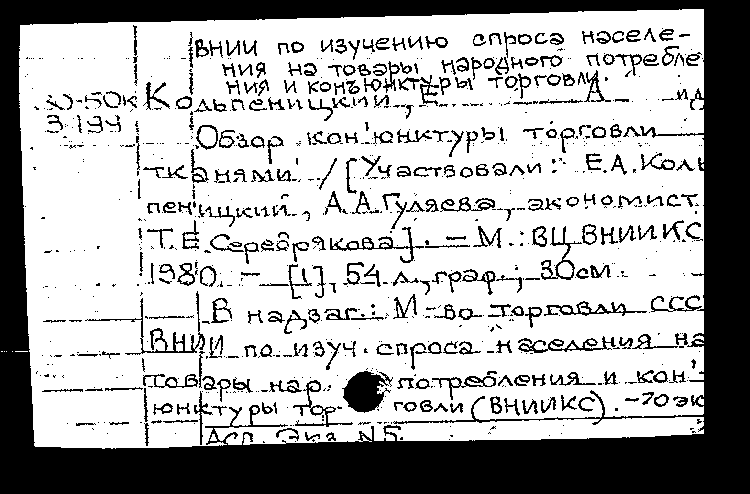 ВНИИ по изучению спроса населе-
ния на товары народного потребле
ния и конъюнктуры торговли.
Кольпеницкий, Е А и др
З 194
Обзор кон'юнктуры торговли
тканями / [Участвовали: Е.А. Коль
пеницкий, А.А. Гуляева, экономист
Т.Е. Серебрякова]. - М.: ВЦ ВНИИКС
1980. - [1], 54 л., граф.; 30см.
В надзаг.: М-во торговли ССС
ВНИИ по изуч. спроса населения на
товары нар. потребления и кон'-
юнктуры тор- говли (ВНИИКС). - 70 эк
№5.